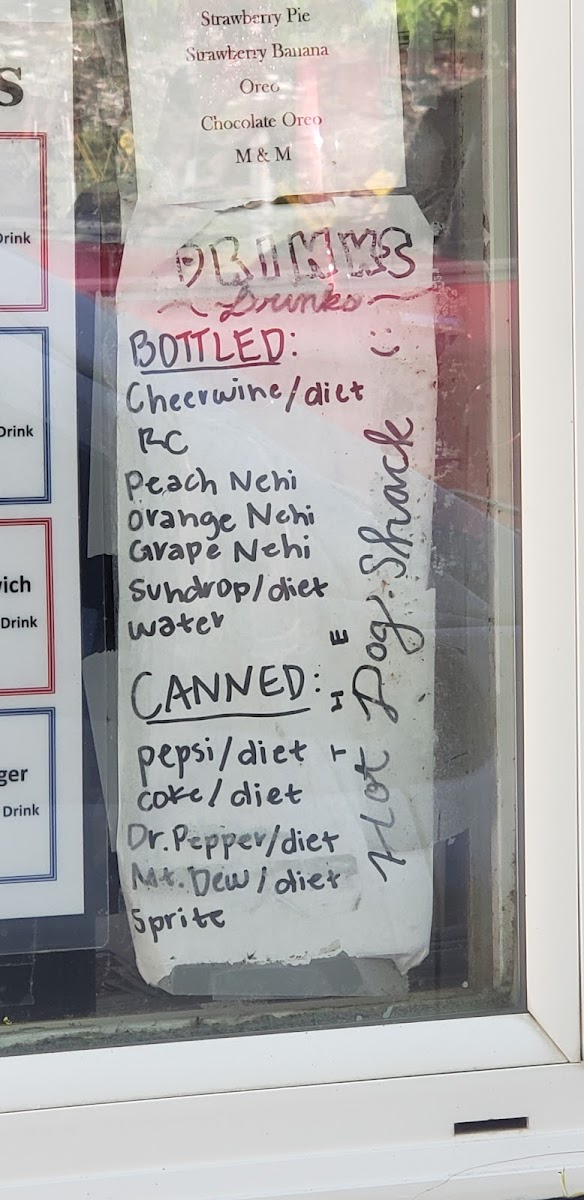 s
Drink
Drink
ich
Drink
ger
Drink
Strawberry Pie
Strawberry Banana
Oreo
Chocolate Oreo
M & M
DRINKS
Drinks
BOTTLED:
Cheerwine/diet
RC
Peach Nehi
Orange Nehi
Grape Nehi
Sundrop/diet
water
CANNED:
pepsi/diet
coke/diet
Dr.Pepper/diet
Mt.Dew/diet
Sprite
THE
Hot Dog Shack :)